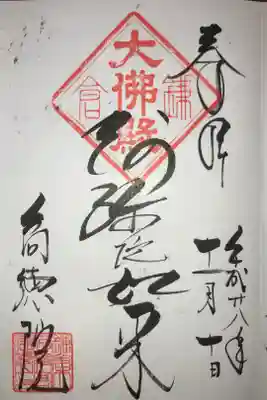 奉拝
平成廿八年
十一月十日
大佛殿
鎌倉
阿弥陀如来
高徳院